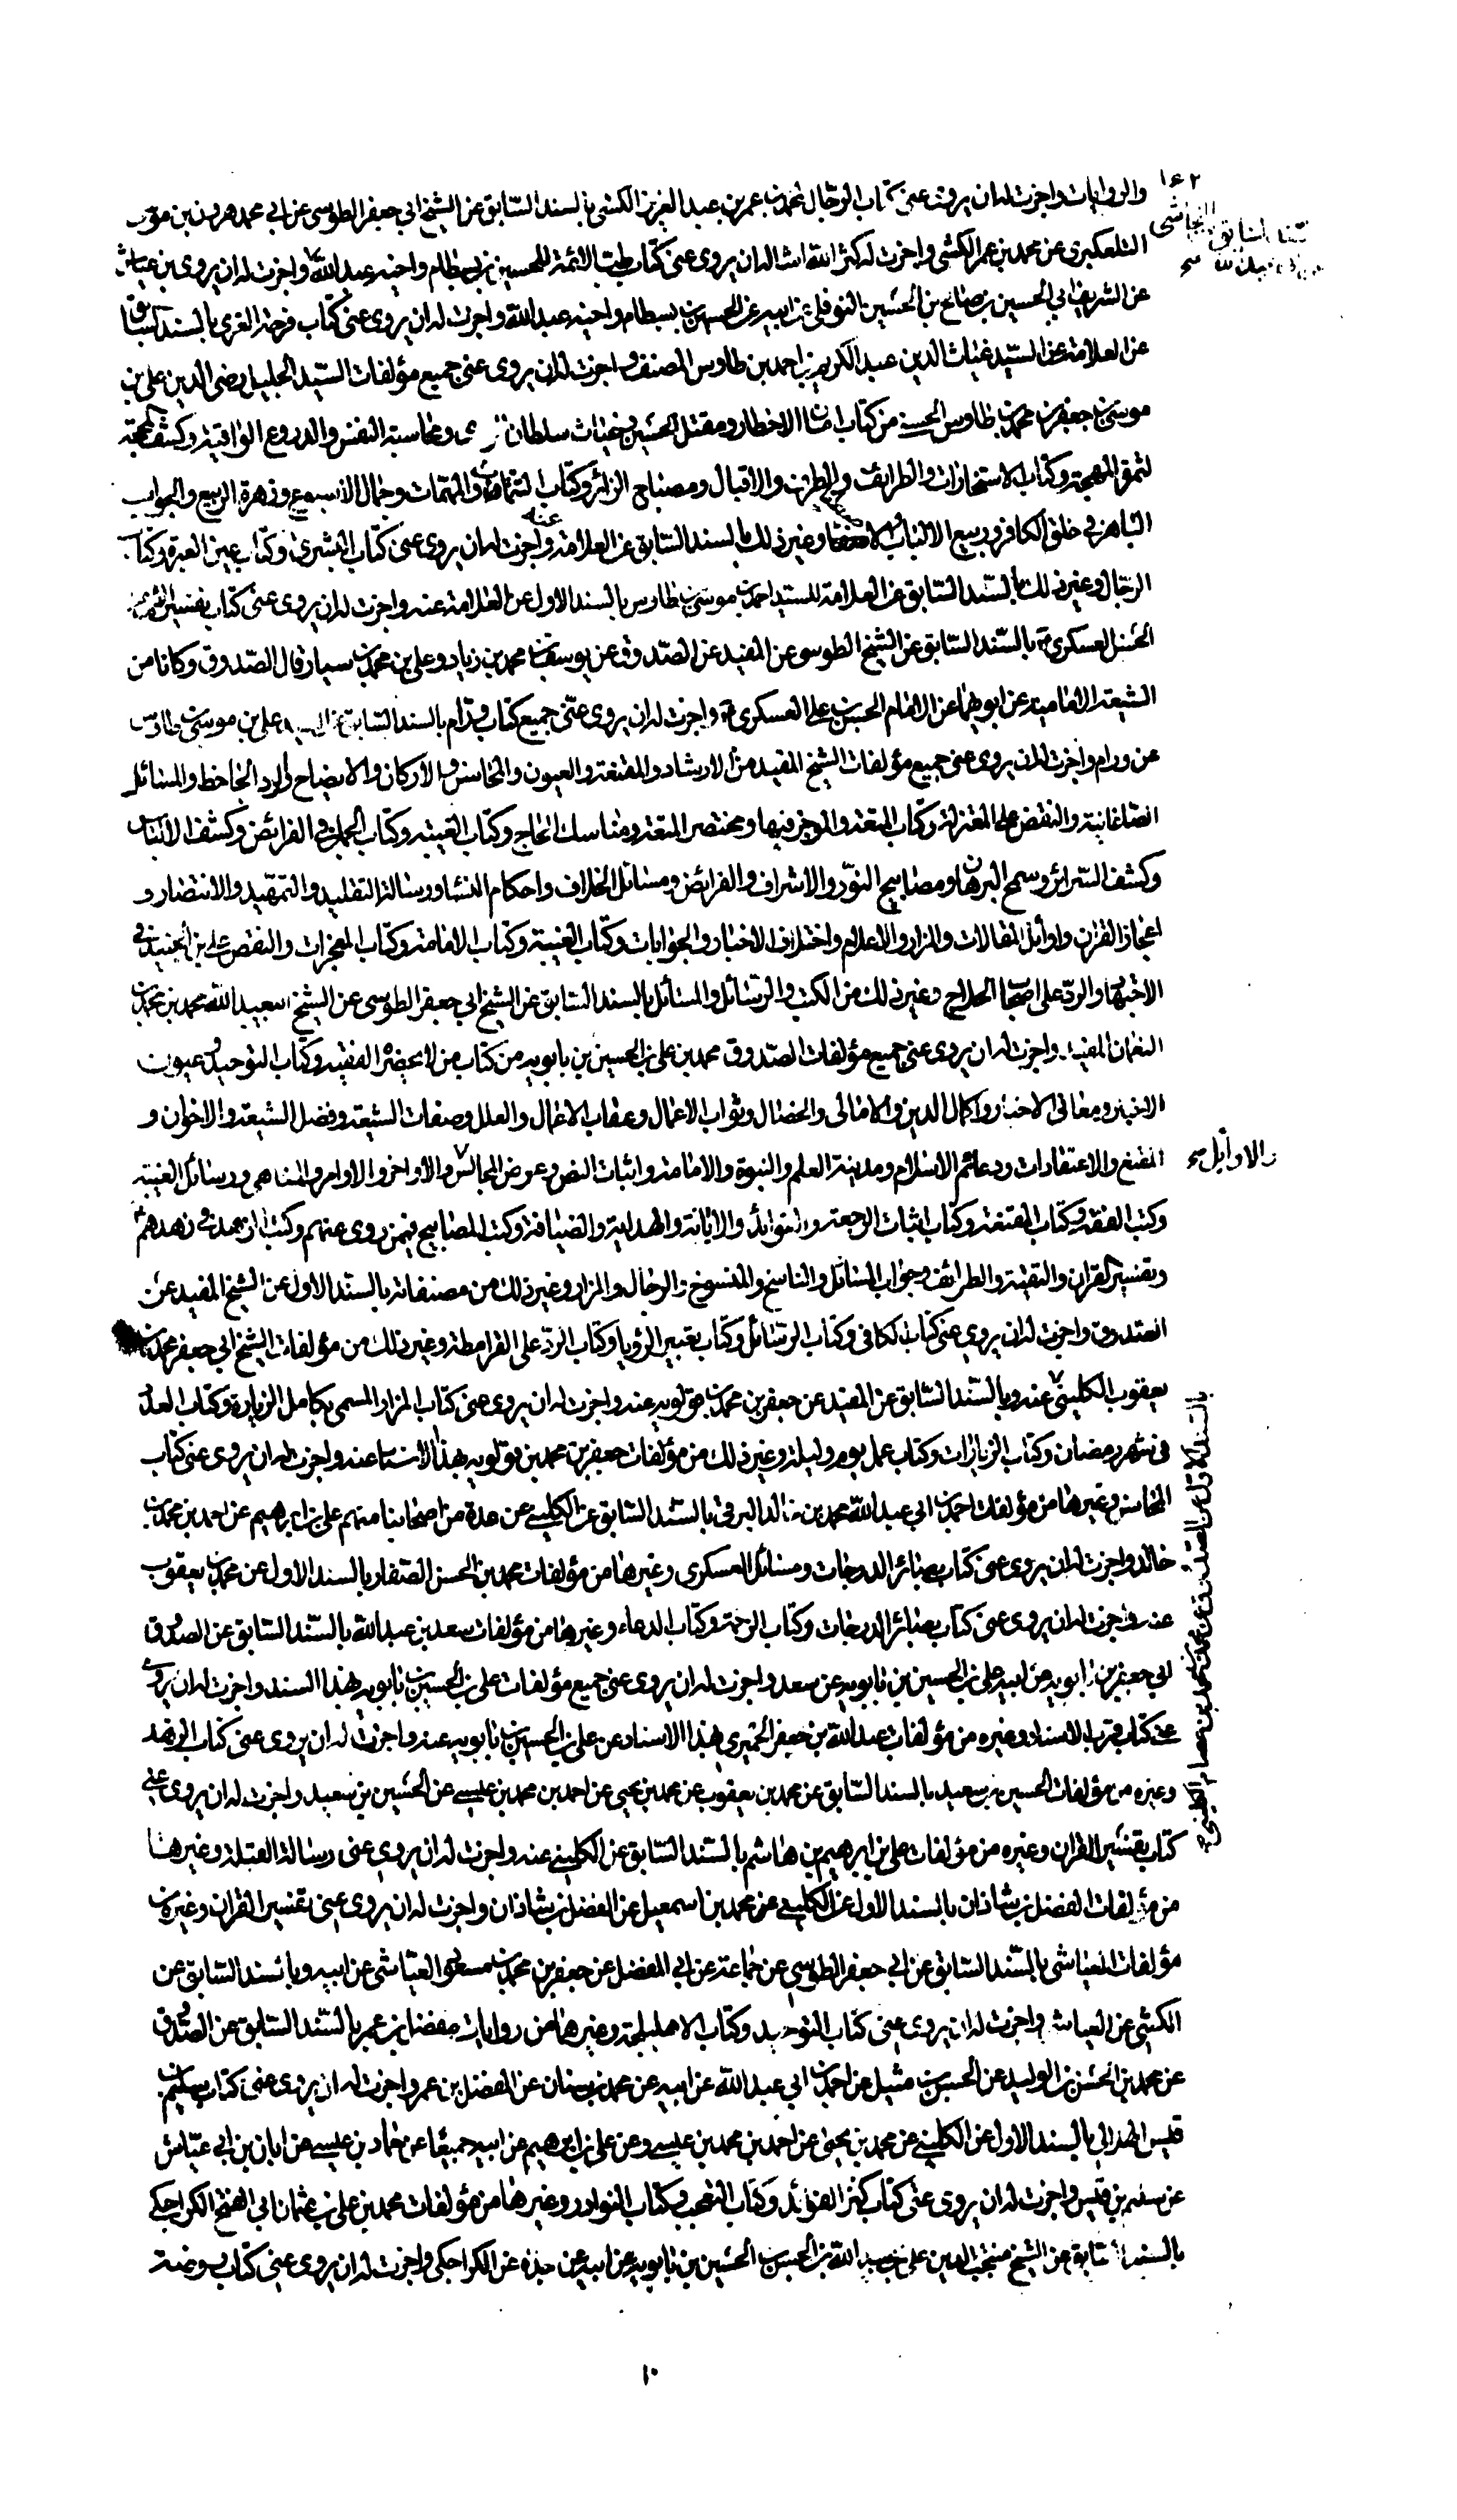 ١٤٢
والروايات واجزت له ان يروي عني كتاب الرجال لمحمد بن عمر بن عبد العزيز الكشي بالسند السابق عن الشيخ ابي جعفر الطوسي عن ابي محمد هرون بن موسى
التلعكبري عن محمد بن عمر الكشي واجزت له كثر الله امثاله ان يروي عني كتاب طب الائمة للحسين بن بسطام واخيه عبد الله واجزت له ان يروي بن عياش
عن الشريف ابي الحسين بن صالح بن الحسين النوفلي عن ابيه عن الحسين بن بسطام واخيه عبد الله واجزت له ان يروي عني كتاب فرحة الغري بالسند السابق
عن العلامة عن السيد غياث الدين عبد الكريم بن احمد بن طاوس المصنف واجزت له ان يروي عني جميع مؤلفات السيد الجليل رضي الدين علي بن
موسى بن جعفر بن محمد بن طاوس الحسيني من كتاب امان الاخطار ومقتل الحسين وغياث سلطان ومحاسبة النفس والدروع الواقية وكشف المحجة
لثمرة المهجة وكتاب الاستخارات والطرائف والطرف والاقبال ومصباح الزائر وكتاب التمات والمهمات وجمال الاسبوع وزهرة الربيع والجواب
الباهر في خلق الكافر وربيع الالباب وغير ذلك بالسند السابق عن العلامة عنه واجزت له ان يروي عني كتاب البشرى وكتاب عين العبرة وكتاب
الرجال وغير ذلك بالسند السابق عن العلامة للسيد احمد بن موسى بن طاوس بالسند الاول عن العلامة عنه واجزت له ان يروي عني كتاب تفسير
الحسن العسكري بالسند السابق عن الشيخ الطوسي عن المفيد عن الصدوق عن يوسف بن محمد بن زياد وعلي بن محمد بن سيار قال الصدوق وكانا من
الشيعة الامامية عن ابويهما عن الامام الحسن بن علي العسكري واجزت له ان يروي عني جميع كتاب ورام بالسند السابق علي بن موسى بن طاوس
عن ورام واجزت له ان يروي عني جميع مؤلفات الشيخ المفيد من الارشاد والمقنعة والعيون والمحاسن والاركان والايضاح والرد الجاحظ والمسائل
الصاغانية والنقض على المعتزلة وكتاب المتعة والموجز فيها ومختصر المتعة ومناسك الحاج وكتاب الغيبة وكتاب الجمل في الفرائض وكشف الالباس
وكشف السرائر ومصابيح النور والاشراف والفرائض ومسائل الخلاف واحكام النساء ورسالة التقليد والتمهيد والانتصار و
اعجاز القران واوائل المقالات والمزار والاعلام واختلاف الاخبار والجوابات وكتاب الغيبة وكتاب الامامة وكتاب المعجزات والنقض على بن الجنيد في
والرد على اصحاب الحلاج وغير ذلك من الكتب والرسائل والمسائل بالسند السابق عن الشيخ ابي جعفر الطوسي عن الشيخ محمد بن محمد بن
النعمان المفيد واجزت له ان يروي عني جميع مؤلفات الصدوق محمد بن علي بن الحسين بن بابويه من كتاب من لا يحضره الفقيه وكتاب التوحيد وعيون
الاخبار ومعاني الاخبار واكمال الدين والامالي والخصال وثواب الاعمال وعقاب الاعمال والعلل وصفات الشيعة وفضل الشيعة والاخوان و
المقنع والاعتقادات ودعائم الاسلام ومدينة العلم والنبوة والامامة واثبات النص وعرض المجالس والاواخر والاوامر والمناهي ورسائل الغيبة
والاوائل صح
وكتب الفقه وكتاب المتعة وكتاب اثبات الرجعة والفوائد والابانة والهداية والضيافة وكتب المصابيح فيمن روى عنهم وكتب
وتفسير القران والتقية والطرائف وجواب المسائل والناسخ والمنسوخ والرجال والمزار وغير ذلك من مصنفاته بالسند الاول عن الشيخ المفيد عن
الصدوق واجزت له ان يروي عني كتاب الكافي وكتاب الرسائل وكتاب تعبير الرؤيا وكتاب الرد على القرامطة وغير ذلك من مؤلفات الشيخ ابي جعفر محمد بن
يعقوب الكليني عنه وبالسند السابق عن المفيد عن جعفر بن محمد بن قولويه عنه واجزت له ان يروي عني كتاب المزار المسمى بكامل الزيارة وكتاب العدد
في شهر رمضان وكتاب الزيارات وكتاب عمل يوم وليلة وغير ذلك من مؤلفات جعفر بن محمد بن قولويه بهذا الاسناد عنه واجزت له ان يروي عني كتاب
المحاسن وغيرها من مؤلفات احمد بن ابي عبد الله محمد بن خالد البرقي بالسند السابق عن الكليني عن عدة من اصحابنا منهم علي بن ابرهيم عن احمد بن محمد بن
خالد واجزت له ان يروي عني كتاب بصائر الدرجات ومسائل العسكري وغيرها من مؤلفات محمد بن الحسن الصفار بالسند الاول عن محمد بن يعقوب
عنه واجزت له ان يروي عني كتاب بصائر الدرجات وكتاب الرحمة وكتاب الدعاء وغيرها من مؤلفات سعد بن عبد الله بالسند السابق عن الصدوق
ابي جعفر بن بابويه عن ابيه علي بن الحسين بن بابويه عن سعد واجزت له ان يروي عني جميع مؤلفات علي بن الحسين بن بابويه بهذا السند واجزت له ان يروي
عني كتاب قرب الاسناد وغيره من مؤلفات عبد الله بن جعفر الحميري بهذا الاسناد عن علي بن الحسين بن بابويه عنه واجزت له ان يروي عني كتاب الزهد
وغيره من مؤلفات الحسين بن سعيد بالسند السابق عن محمد بن يعقوب عن محمد بن يحيى عن احمد بن محمد بن عيسى عن الحسين بن سعيد واجزت له ان يروي عني
كتاب تفسير القران وغيره من مؤلفات علي بن ابرهيم بن هاشم بالسند السابق عن الكليني عنه واجزت له ان يروي عني رسالة القبلة وغيرها
من مؤلفات الفضل بن شاذان بالسند الاول عن الكليني عن محمد بن اسمعيل عن الفضل بن شاذان واجزت له ان يروي عني تفسير القران وغيره من
مؤلفات العياشي بالسند السابق عن ابي جعفر الطوسي عن جماعة عن ابي المفضل عن جعفر بن محمد بن مسعود العياشي عن ابيه وبالسند السابق عن
الكشي عن العياشي واجزت له ان يروي عني كتاب التوحيد وكتاب الاهليلجة وغيرها من روايات مفضل بن عمر بالسند السابق عن الصدوق
عن محمد بن الحسن بن الوليد عن الحسن بن متيل عن احمد بن ابي عبد الله عن ابيه عن محمد بن سنان عن المفضل بن عمر واجزت له ان يروي عني كتاب سليم بن
قيس الهلالي بالسند الاول عن الكليني عن محمد بن يحيى عن احمد بن محمد بن عيسى وعن علي بن ابرهيم عن ابيه جميعا عن حماد بن عيسى عن ابان بن ابي عياش
عن سليم بن قيس واجزت له ان يروي عني كتاب كنز الفوائد وكتاب التعجب وكتاب النوادر وغيرها من مؤلفات محمد بن علي بن عثمان ابي الفتح الكراجكي
بالسند السابق عن الشيخ منتجب الدين علي بن عبيد الله بن الحسن بن الحسين بن بابويه عن ابيه عن جده عن الكراجكي واجزت له ان يروي عني كتاب روضة
١٠